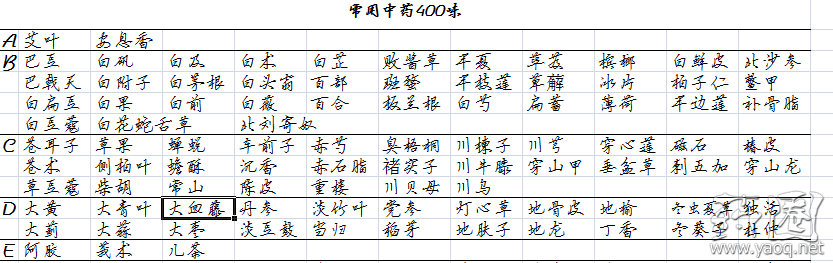 常用中药400味
A 艾叶 安息香
B 巴豆 白矾 白及 白术 白芷 败酱草 半夏 荜茇 槟榔 白鲜皮 北沙参
巴戟天 白附子 白茅根 白头翁 百部 斑蝥 半枝莲 萆薢 冰片 柏子仁 鳖甲
白扁豆 白果 白前 白薇 百合 板蓝根 白芍 扁蓄 薄荷 半边莲 补骨脂
白豆蔻 白花蛇舌草 北刘寄奴
C 苍耳子 草果 蝉蜕 车前子 赤芍 臭梧桐 川楝子 川芎 穿心莲 磁石 椿皮
苍术 侧柏叶 蟾酥 沉香 赤石脂 褚实子 川牛膝 穿山甲 垂盆草 刺五加 穿山龙
草豆蔻 柴胡 常山 陈皮 重楼 川贝母 川乌
D 大黄 大青叶 大血藤 丹参 淡竹叶 党参 灯心草 地骨皮 地榆 冬虫夏草 独活
大蓟 大蒜 大枣 淡豆豉 当归 稻芽 地肤子 地龙 丁香 冬葵子 杜仲
E 阿胶 莪术 儿茶
药圈
www.yaoq.net